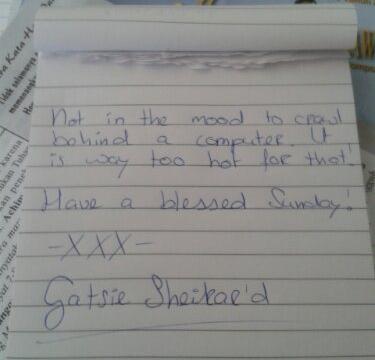 Not in the mood to crawl
behind a computer. It
is way too hot for that!
Have a blessed Sunday!
-XXX-
Gatsie Sheikae'd